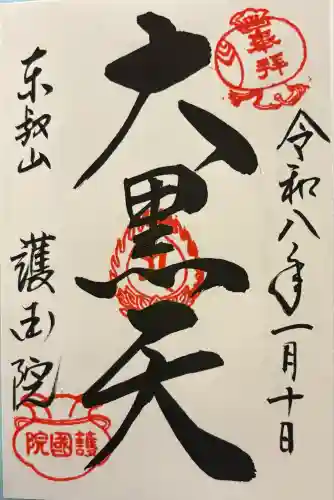 奉拝
令和八年一月十日
大黒天
東叡山 護国院
護國院